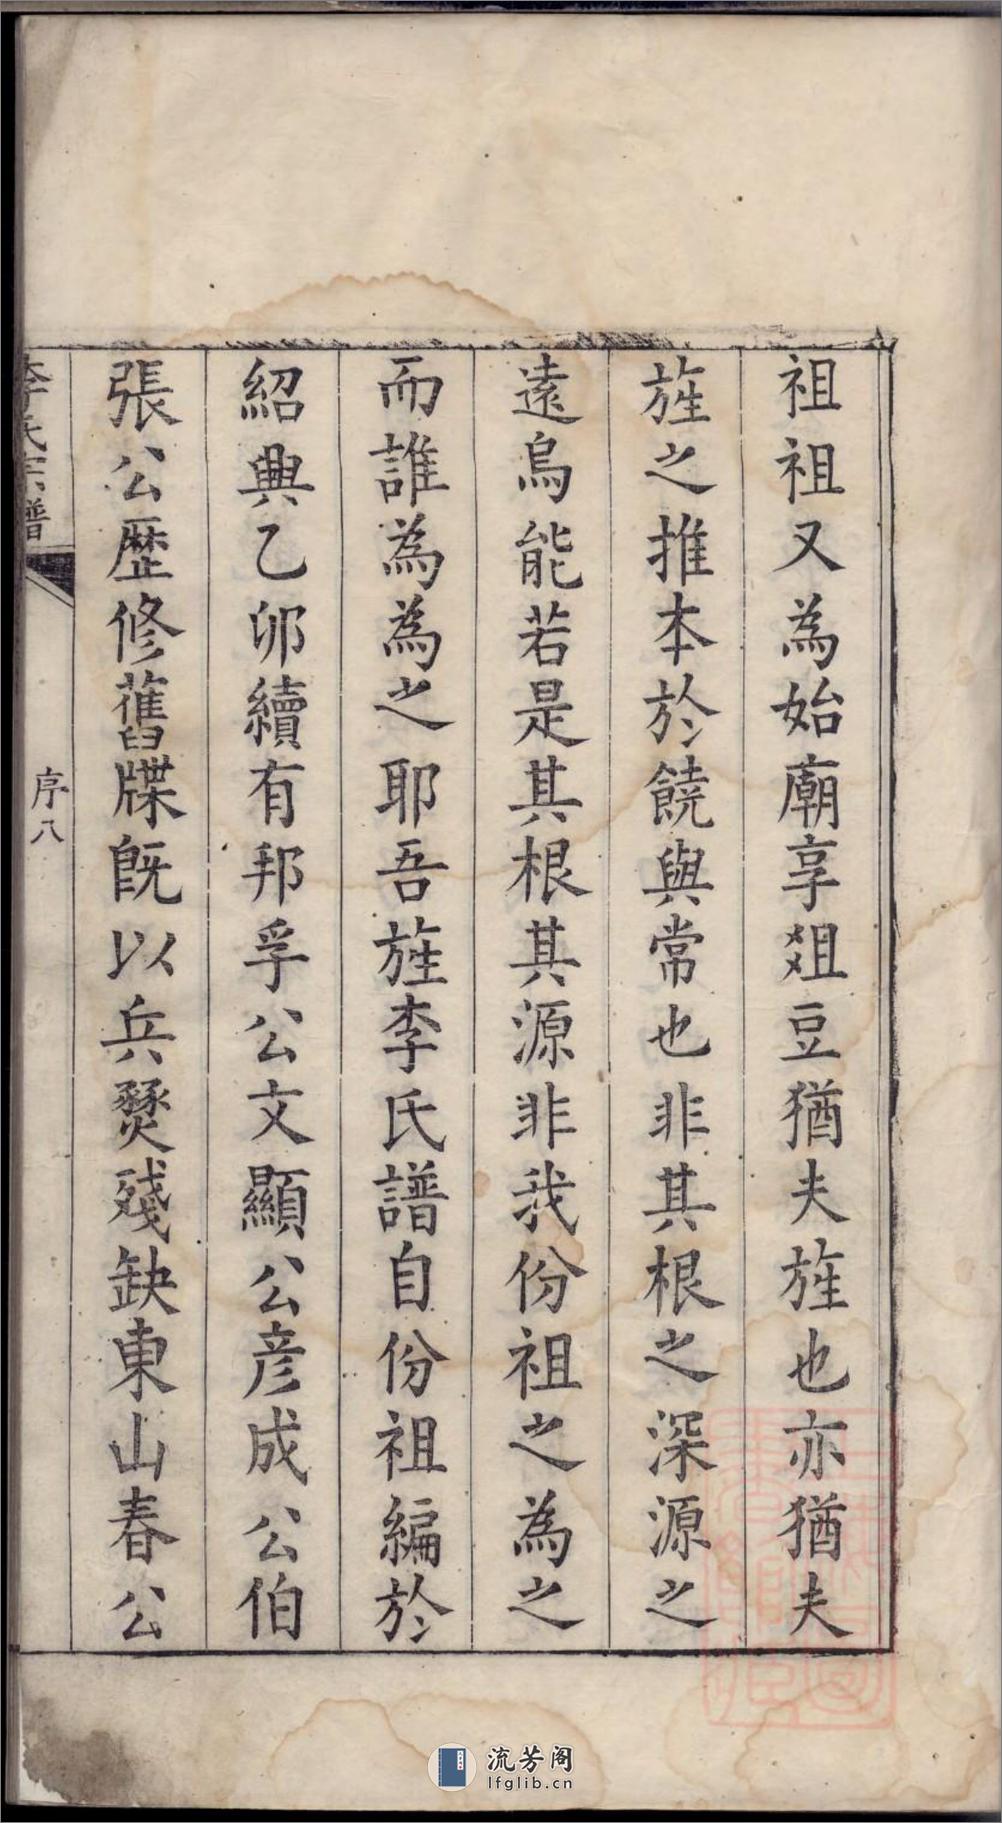 祖祖又為始廟享爼豆猶夫旌也亦猶夫
旌之推本於饒與常也非其根之深源之
遠烏能若是其根其源非我份祖之為之
而誰為為之耶吾旌李氏譜自份祖編於
紹興乙卯續有邦孚公文顯公彦成公伯
張公歷修舊牒旣以兵燹殘缺東山春公
李氏宗譜
序八
流芳阁
lfglib.cn